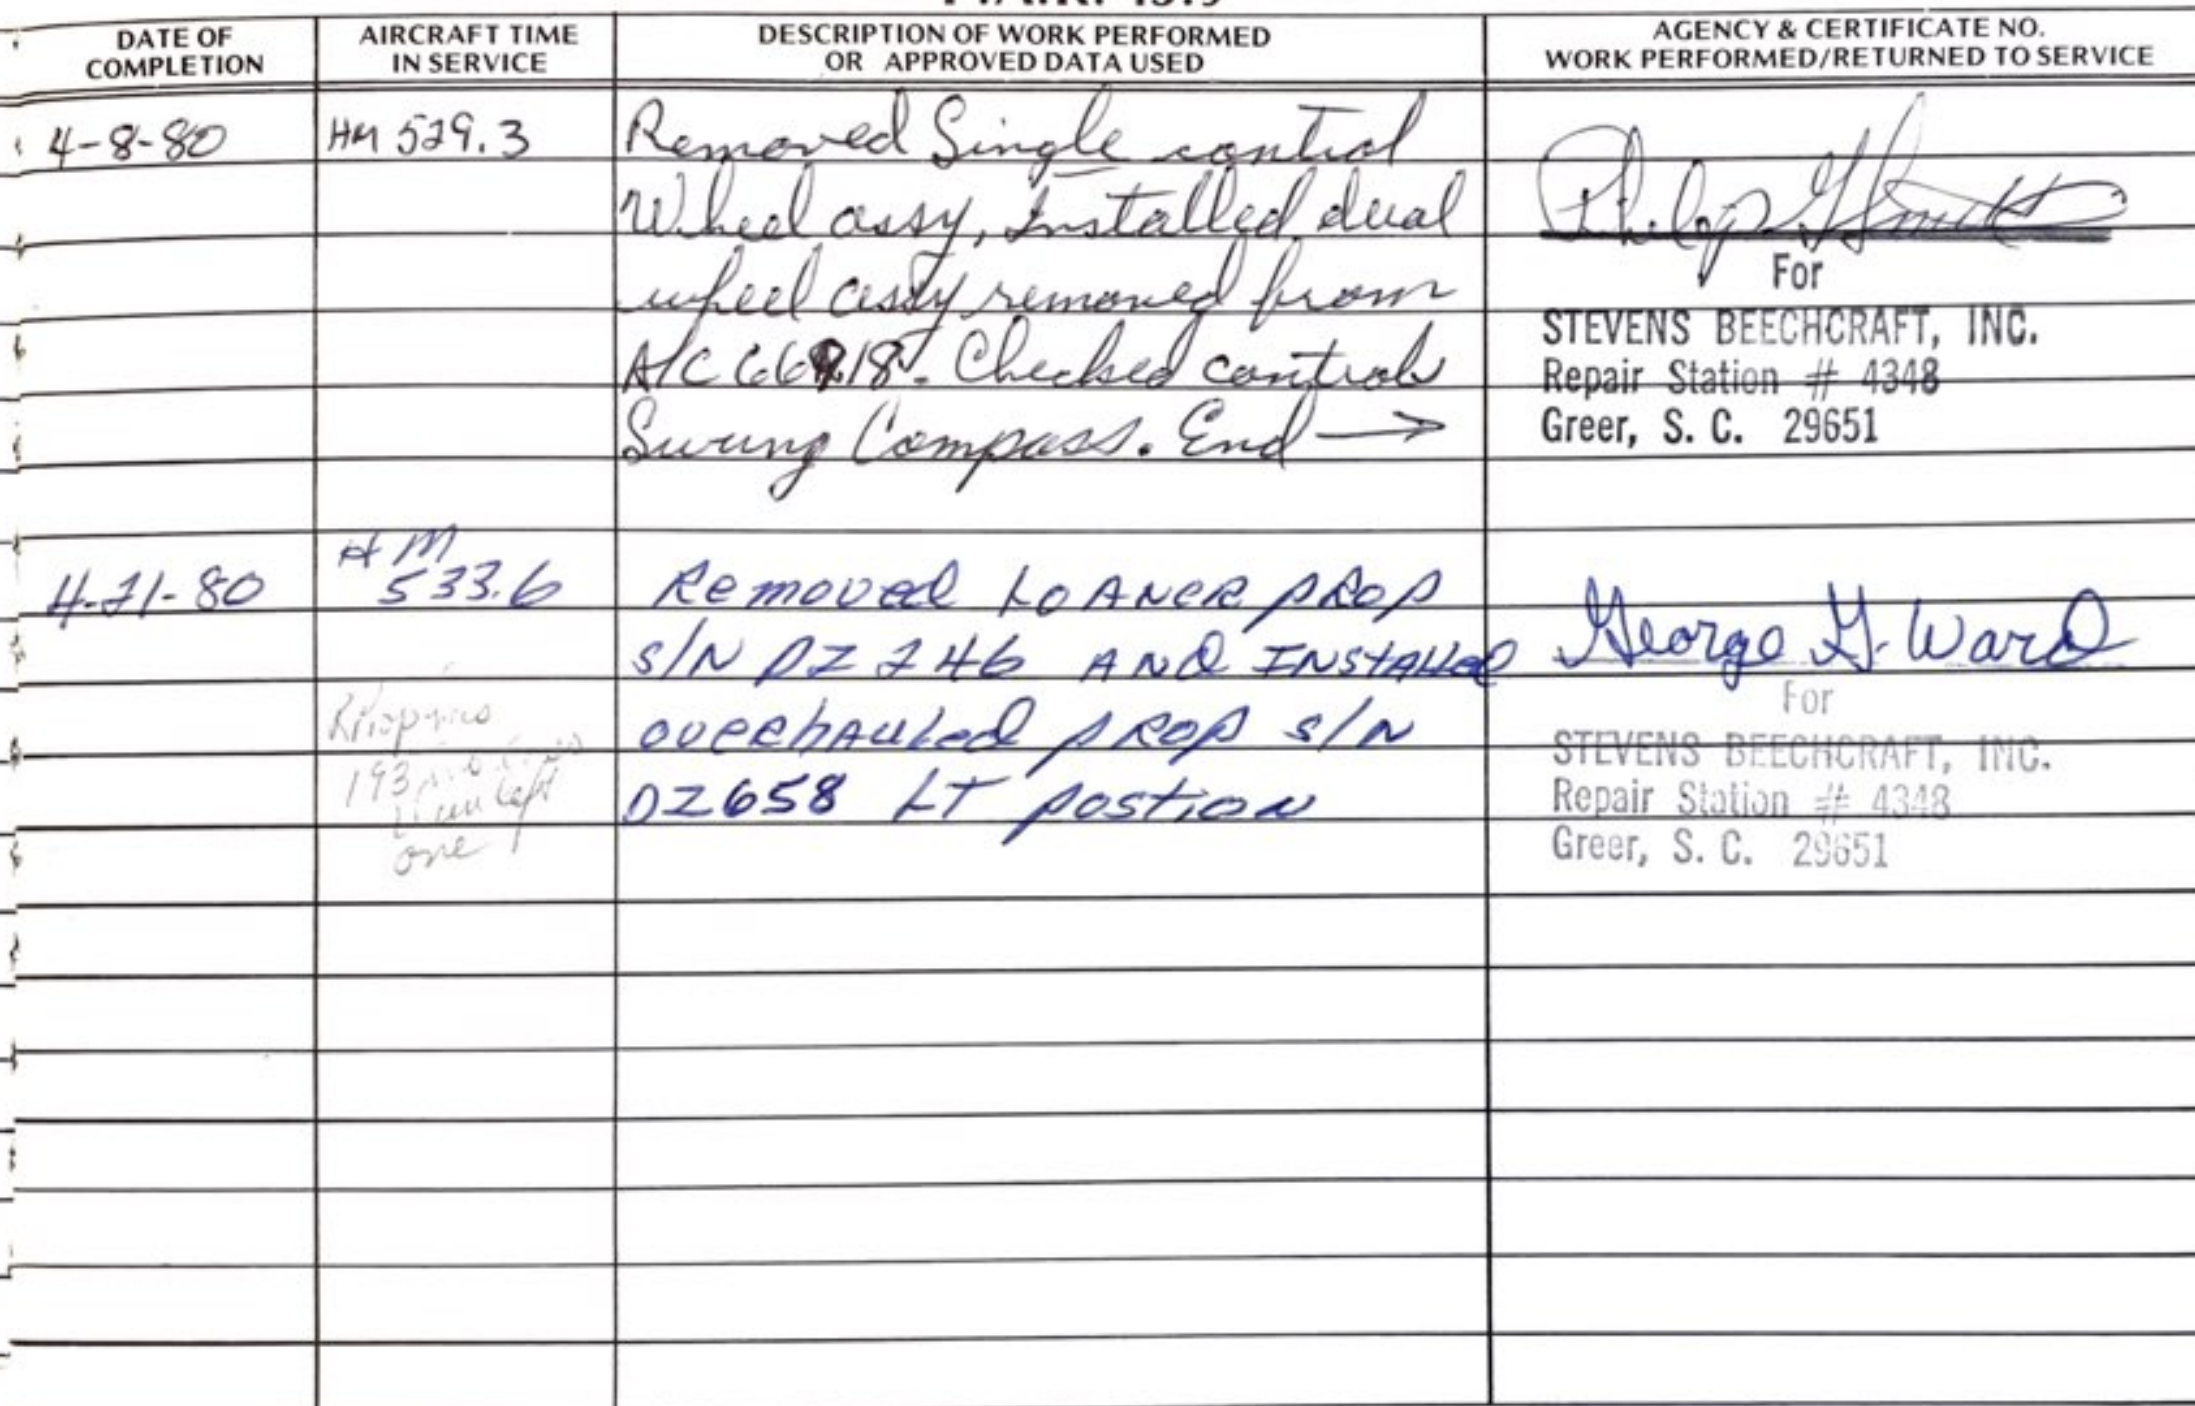 DATE OF COMPLETION
AIRCRAFT TIME IN SERVICE
DESCRIPTION OF WORK PERFORMED OR APPROVED DATA USED
AGENCY & CERTIFICATE NO. WORK PERFORMED/RETURNED TO SERVICE
4-8-80
HM 529.3
Removed Single control
Wheel assy, Installed dual
wheel assy removed from
A/C 66718. Checked controls
Swung Compass. End →
Philip G Smith
For
STEVENS BEECHCRAFT, INC.
Repair Station # 4348
Greer, S. C. 29651
4-21-80
HM
533.6
Removed LOANER PROP
S/N DZ 246 AND INSTALLED
overhauled prop s/n
DZ658 LT postion
George G. Ward
For
STEVENS BEECHCRAFT, INC.
Repair Station # 4348
Greer, S. C. 29651
193
left
one